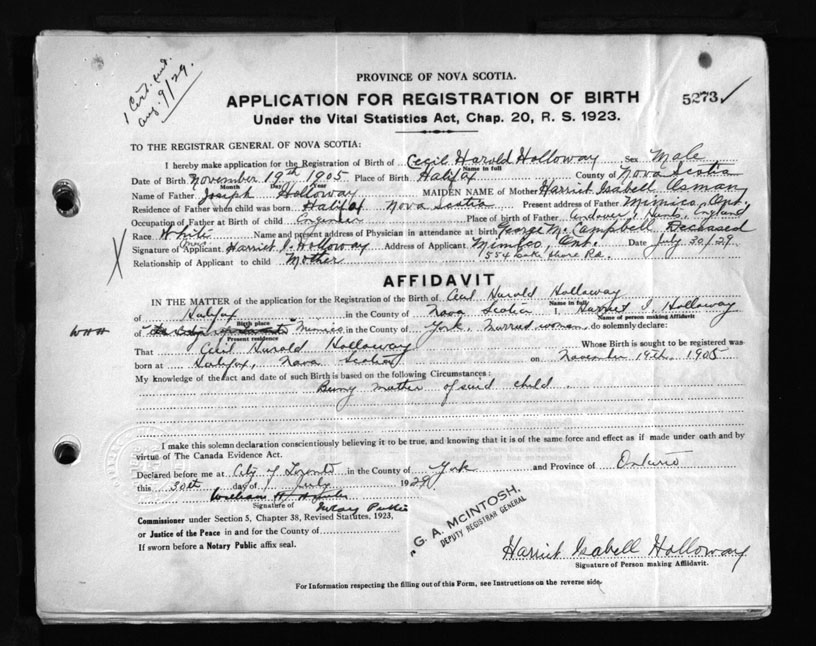 1 Cert. Aug. 9/29.
PROVINCE OF NOVA SCOTIA.
APPLICATION FOR REGISTRATION OF BIRTH 5273
Under the Vital Statistics Act, Chap. 20, R. S. 1923.
TO THE REGISTRAR GENERAL OF NOVA SCOTIA:
I hereby make application for the Registration of Birth of Cecil Harold Holloway Sex Male
Name in full
Date of Birth November 19th 1905 Place of Birth Halifax County of Nova Scotia
Month Day Year
Name of Father Joseph Holloway MAIDEN NAME of Mother Harriet Isabell Osman
Residence of Father when child was born Halifax Nova Scotia Present address of Father Mimico, Ont.
Occupation of Father at Birth of child Engineer Place of birth of Father Andover, Hants, England
Race White Name and present address of Physician in attendance at birth George M. Campbell, Deceased
Signature of Applicant Harriet I. Holloway Address of Applicant Mimico, Ont. Date July 30/29.
Relationship of Applicant to child Mother 554 Lake Shore Rd.
AFFIDAVIT
IN THE MATTER of the application for the Registration of the Birth of Cecil Harold Holloway
of Halifax in the County of Nova Scotia I, Harriet I. Holloway
Birth place Name of person making Affidavit
of Mimico in the County of York, Married woman, do solemnly declare:
Present residence
That Cecil Harold Holloway Whose Birth is sought to be registered was
born at Halifax, Nova Scotia on November 19th, 1905
My knowledge of the fact and date of such Birth is based on the following Circumstances:
Being mother of said child.
I make this solemn declaration conscientiously believing it to be true, and knowing that it is of the same force and effect as if made under oath and by
virtue of The Canada Evidence Act.
Declared before me at City of Toronto in the County of York and Province of Ontario
this 30th day of July 1929
William H.
Signature of Notary Public
Commissioner under Section 5, Chapter 38, Revised Statutes, 1923,
or Justice of the Peace in and for the County of
If sworn before a Notary Public affix seal.
G. A. McINTOSH,
DEPUTY REGISTRAR GENERAL
Harriet Isabell Holloway
Signature of Person making Affidavit.
For Information respecting the filling out of this Form, see Instructions on the reverse side.